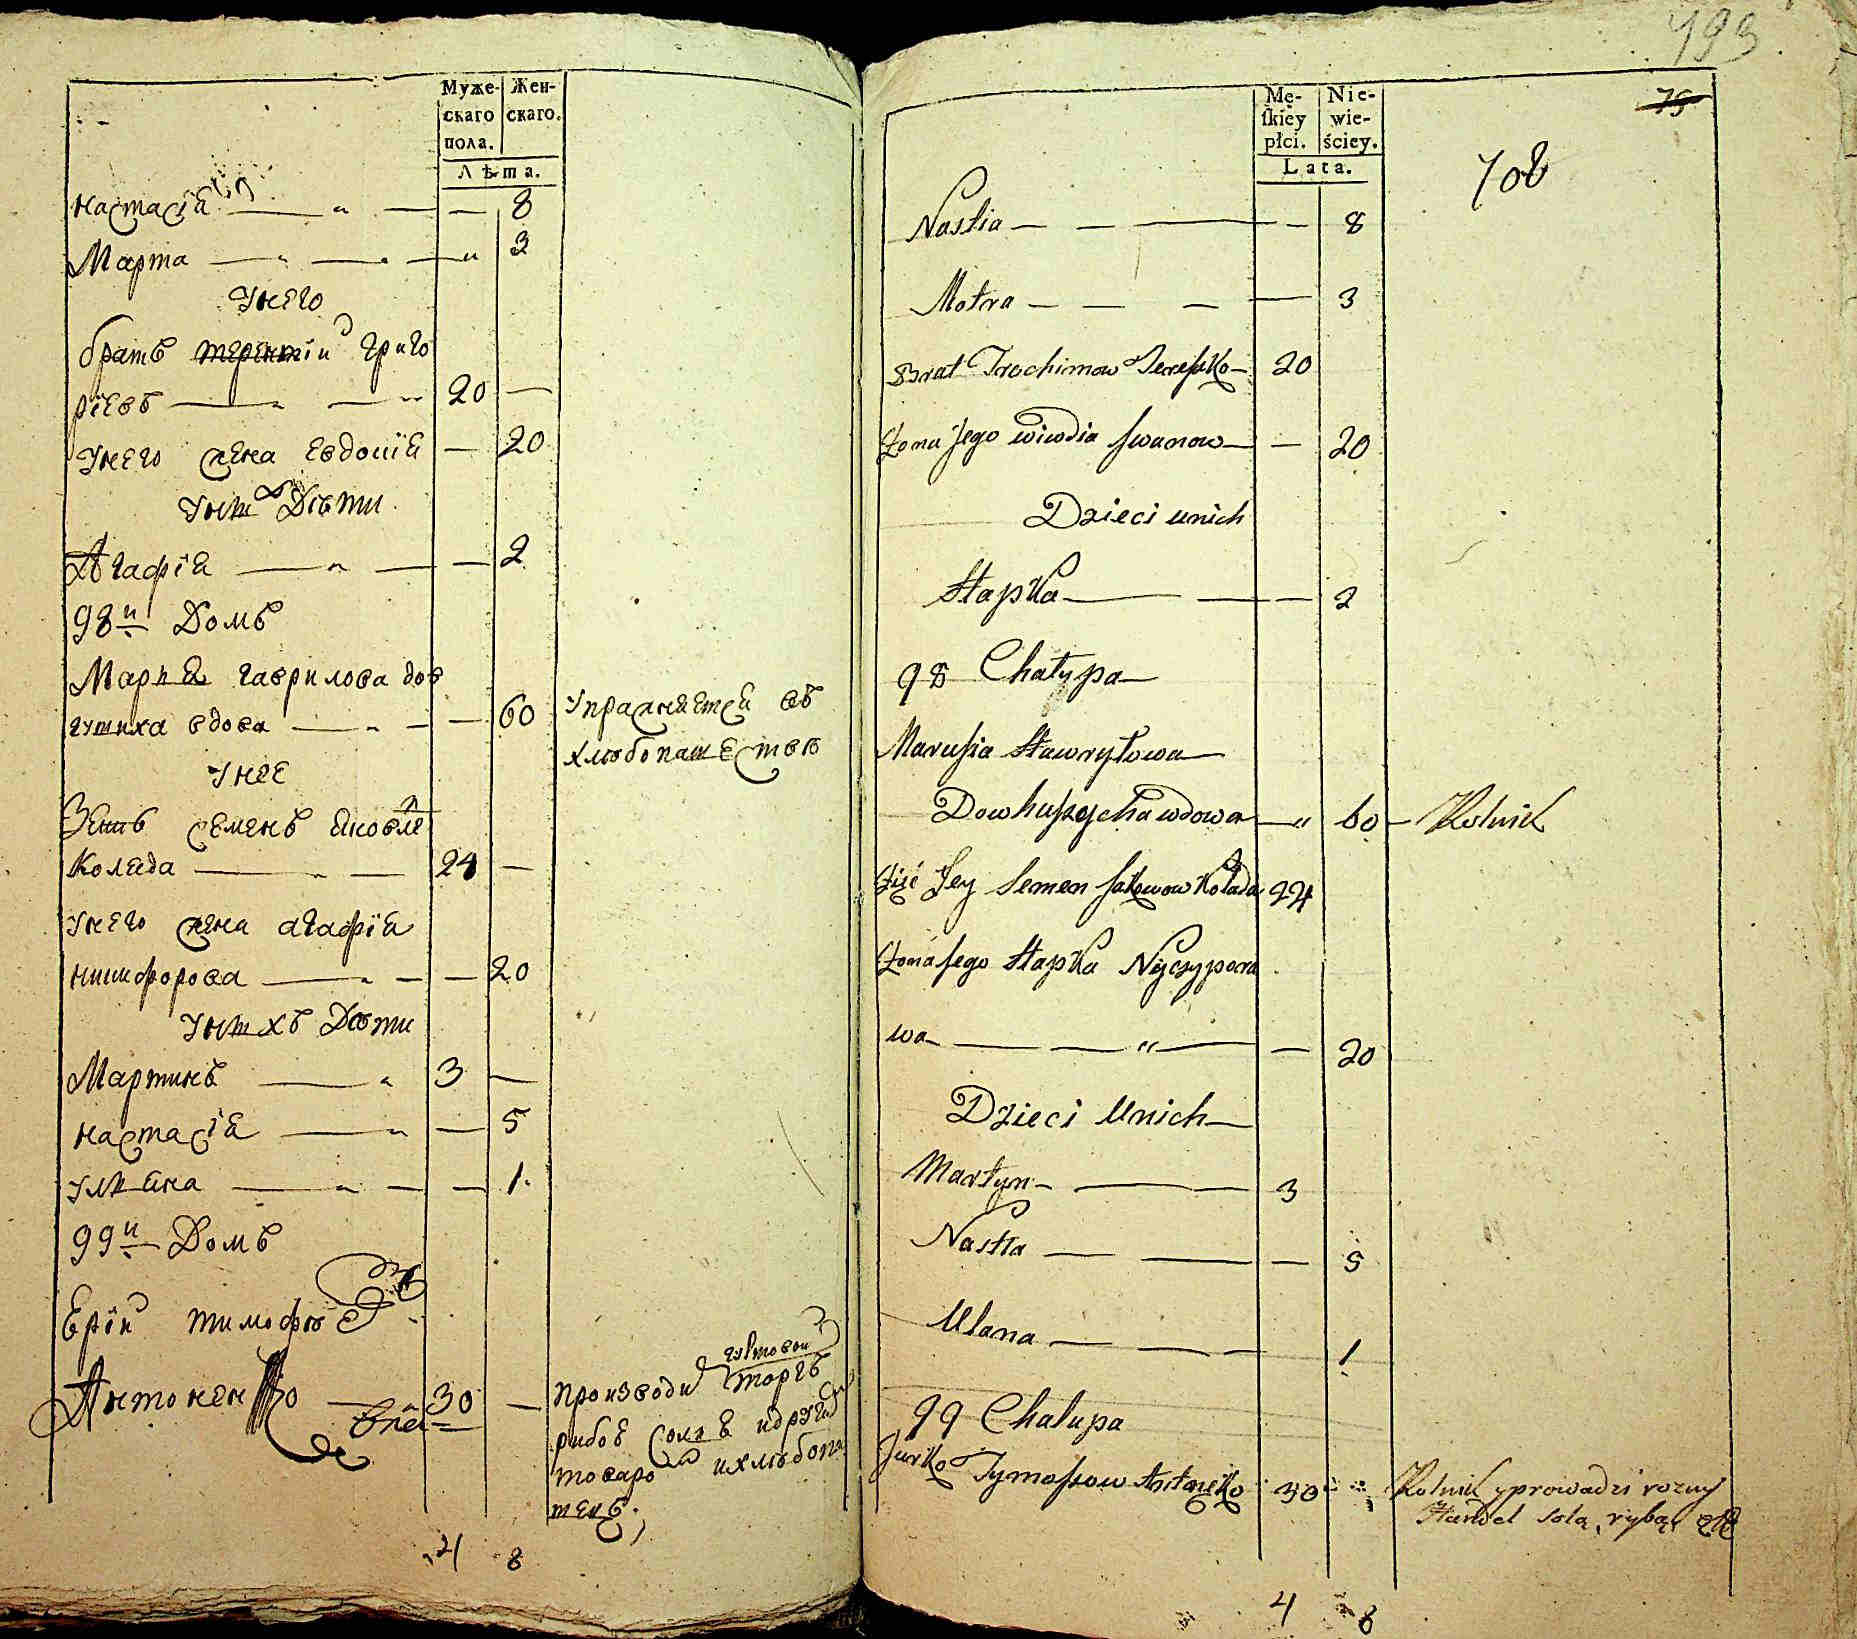 Муже-
скаго
пола.
Жен-
скаго.
Лѣта.
настасія — — — 8
Марта — — — 3
Унего
братъ терентіи григо
ріевъ — — 20 —
Унего жена Евдошія — 20
Уних Дѣти
Агафія — — — 2
98й Домъ
Марія гаврилова дов
гушиха вдова — — — 60
Упражняется въ
хлѣбопашествѣ
Унее
Зять семенъ яковле
Коляда — — 24 —
Унего жена агафія
ничифорова — — — 20
Унихъ Дѣти
Мартинъ — 3 —
настасія — — 5
Улияна — — — 1.
99й Домъ
Ерій тимофѣе
Антоненко — 30 —
производи торгъ
рибоѣ солѣ идруги
товаро ихлѣбопа
шец
4 8
493
75
Mę-
skiey
płci.
Nie-
wie-
ściey.
Lata.
708
Nastia — — — — 8
Motra — — — — 3
Brat Trochimow Tereszko — 20
Żona Jego Wiwdia Iwanow — — 20
Dzieci unich
Hapka — — — 2
98 Chałupa —
Marusia Hawryłowa —
Dowhuszycha wdowa — " 60 — Rolnik
Zięć Jey Semen Jakowow Kolada 24
Żona Jego Hapka Nyczyporo
wa — — — " — — 20
Dzieci Unich —
Martyn — — — 3
Nastia — — — 5
Ulana — — — 1
99 Chalupa
Jurko Tymoszow Antonęko 30
Rolnik y prowadzi rozny
Handel solą, rybą, etc
4 8